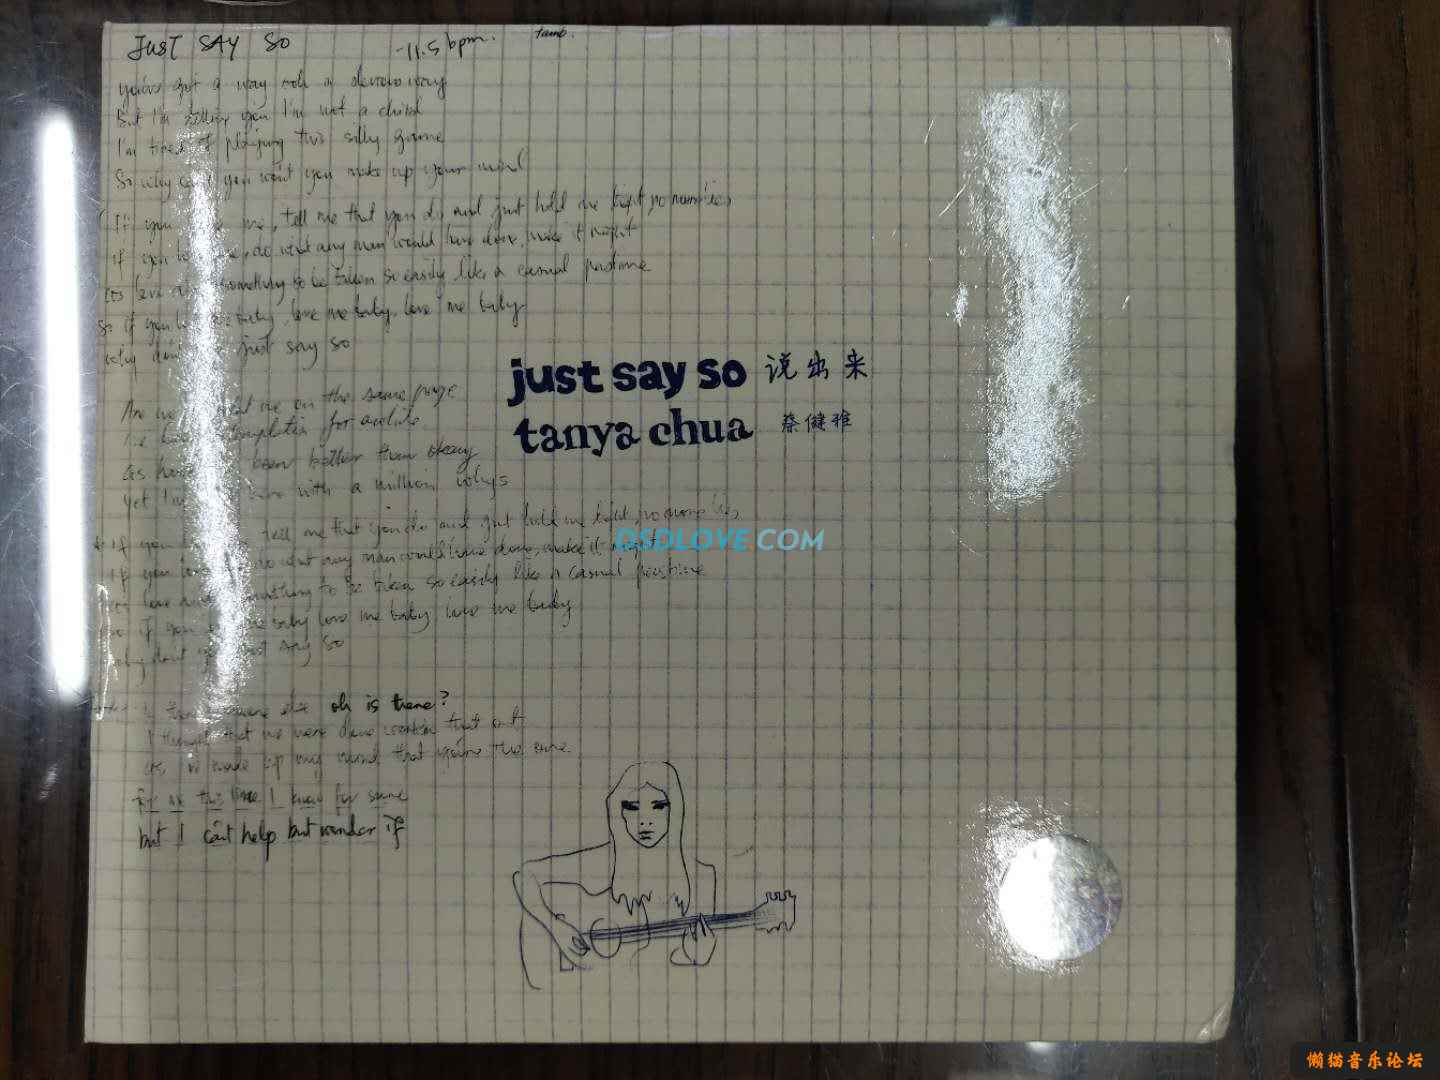 JUST SAY SO
-11.5 bpm.
tamb.
you've got a way
But I'm telling you I'm not a child
I'm tired of playing this silly game
So why can't you won't you make up your mind
If you me, tell me that you do and just hold me tight, no more lies
If you me, do what any man would have done, make it right
love something to be taken so easily like a casual pastime
So if you baby, love me baby, love me baby
why don't just say so
just say so 说出来
tanya chua 蔡健雅
Are we on the same page
for awhile
been better than okay
Yet I'm with a million whys
If you tell me that you do and just hold me tight, no more lies
If you do what any man would have done, make it right
love something to be taken so easily like a casual pastime
So if you baby love me baby love me baby
why don't just say so
DSDLOVE.COM
else oh is there?
I thought that we were done workin that out
I've made up my mind that you're the one
this time I know for sure
but I can't help but wonder if
懒猫音乐论坛